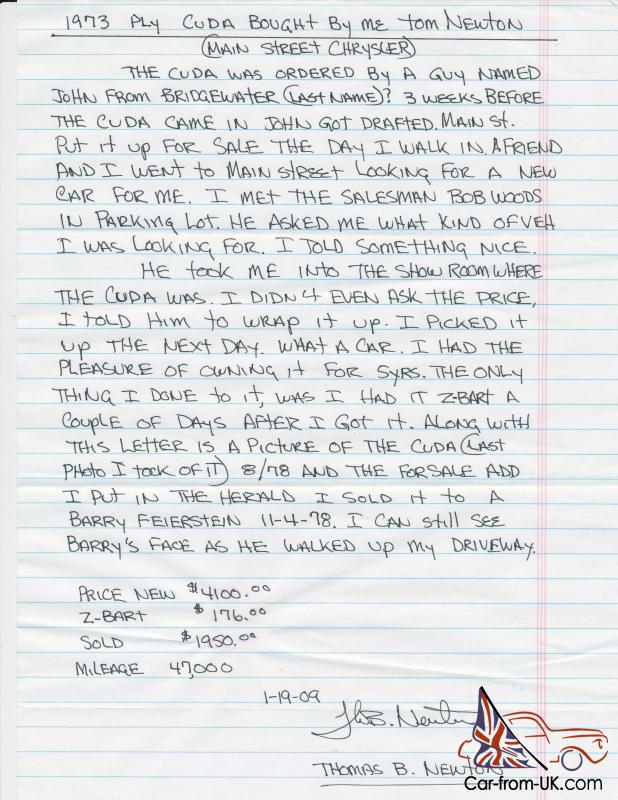 1973 PLY CUDA BOUGHT BY ME TOM NEWTON
(MAIN STREET CHRYSLER)
THE CUDA WAS ORDERED BY A GUY NAMED
JOHN FROM BRIDGEWATER (LAST NAME)? 3 WEEKS BEFORE
THE CUDA CAME IN JOHN GOT DRAFTED. MAIN ST.
PUT IT UP FOR SALE THE DAY I WALK IN. A FRIEND
AND I WENT TO MAIN STREET LOOKING FOR A NEW
CAR FOR ME. I MET THE SALESMAN BOB WOODS
IN PARKING LOT. HE ASKED ME WHAT KIND OF VEH
I WAS LOOKING FOR. I TOLD SOMETHING NICE.
HE TOOK ME INTO THE SHOW ROOM WHERE
THE CUDA WAS. I DIDN'T EVEN ASK THE PRICE,
I TOLD HIM TO WRAP IT UP. I PICKED IT
UP THE NEXT DAY. WHAT A CAR. I HAD THE
PLEASURE OF OWNING IT FOR 5YRS. THE ONLY
THING I DONE TO IT, WAS I HAD IT Z-BART A
COUPLE OF DAYS AFTER I GOT IT. ALONG WITH
THIS LETTER IS A PICTURE OF THE CUDA (LAST
PHOTO I TOOK OF IT) 8/78 AND THE FORSALE ADD
I PUT IN THE HERALD I SOLD IT TO A
BARRY FEIERSTEIN 11-4-78. I CAN STILL SEE
BARRY'S FACE AS HE WALKED UP MY DRIVEWAY.
PRICE NEW $4100.00
Z-BART $176.00
SOLD $1950.00
MILEAGE 47,000
1-19-09
Th B. Newton
THOMAS B. NEWTON
Car-from-UK.com